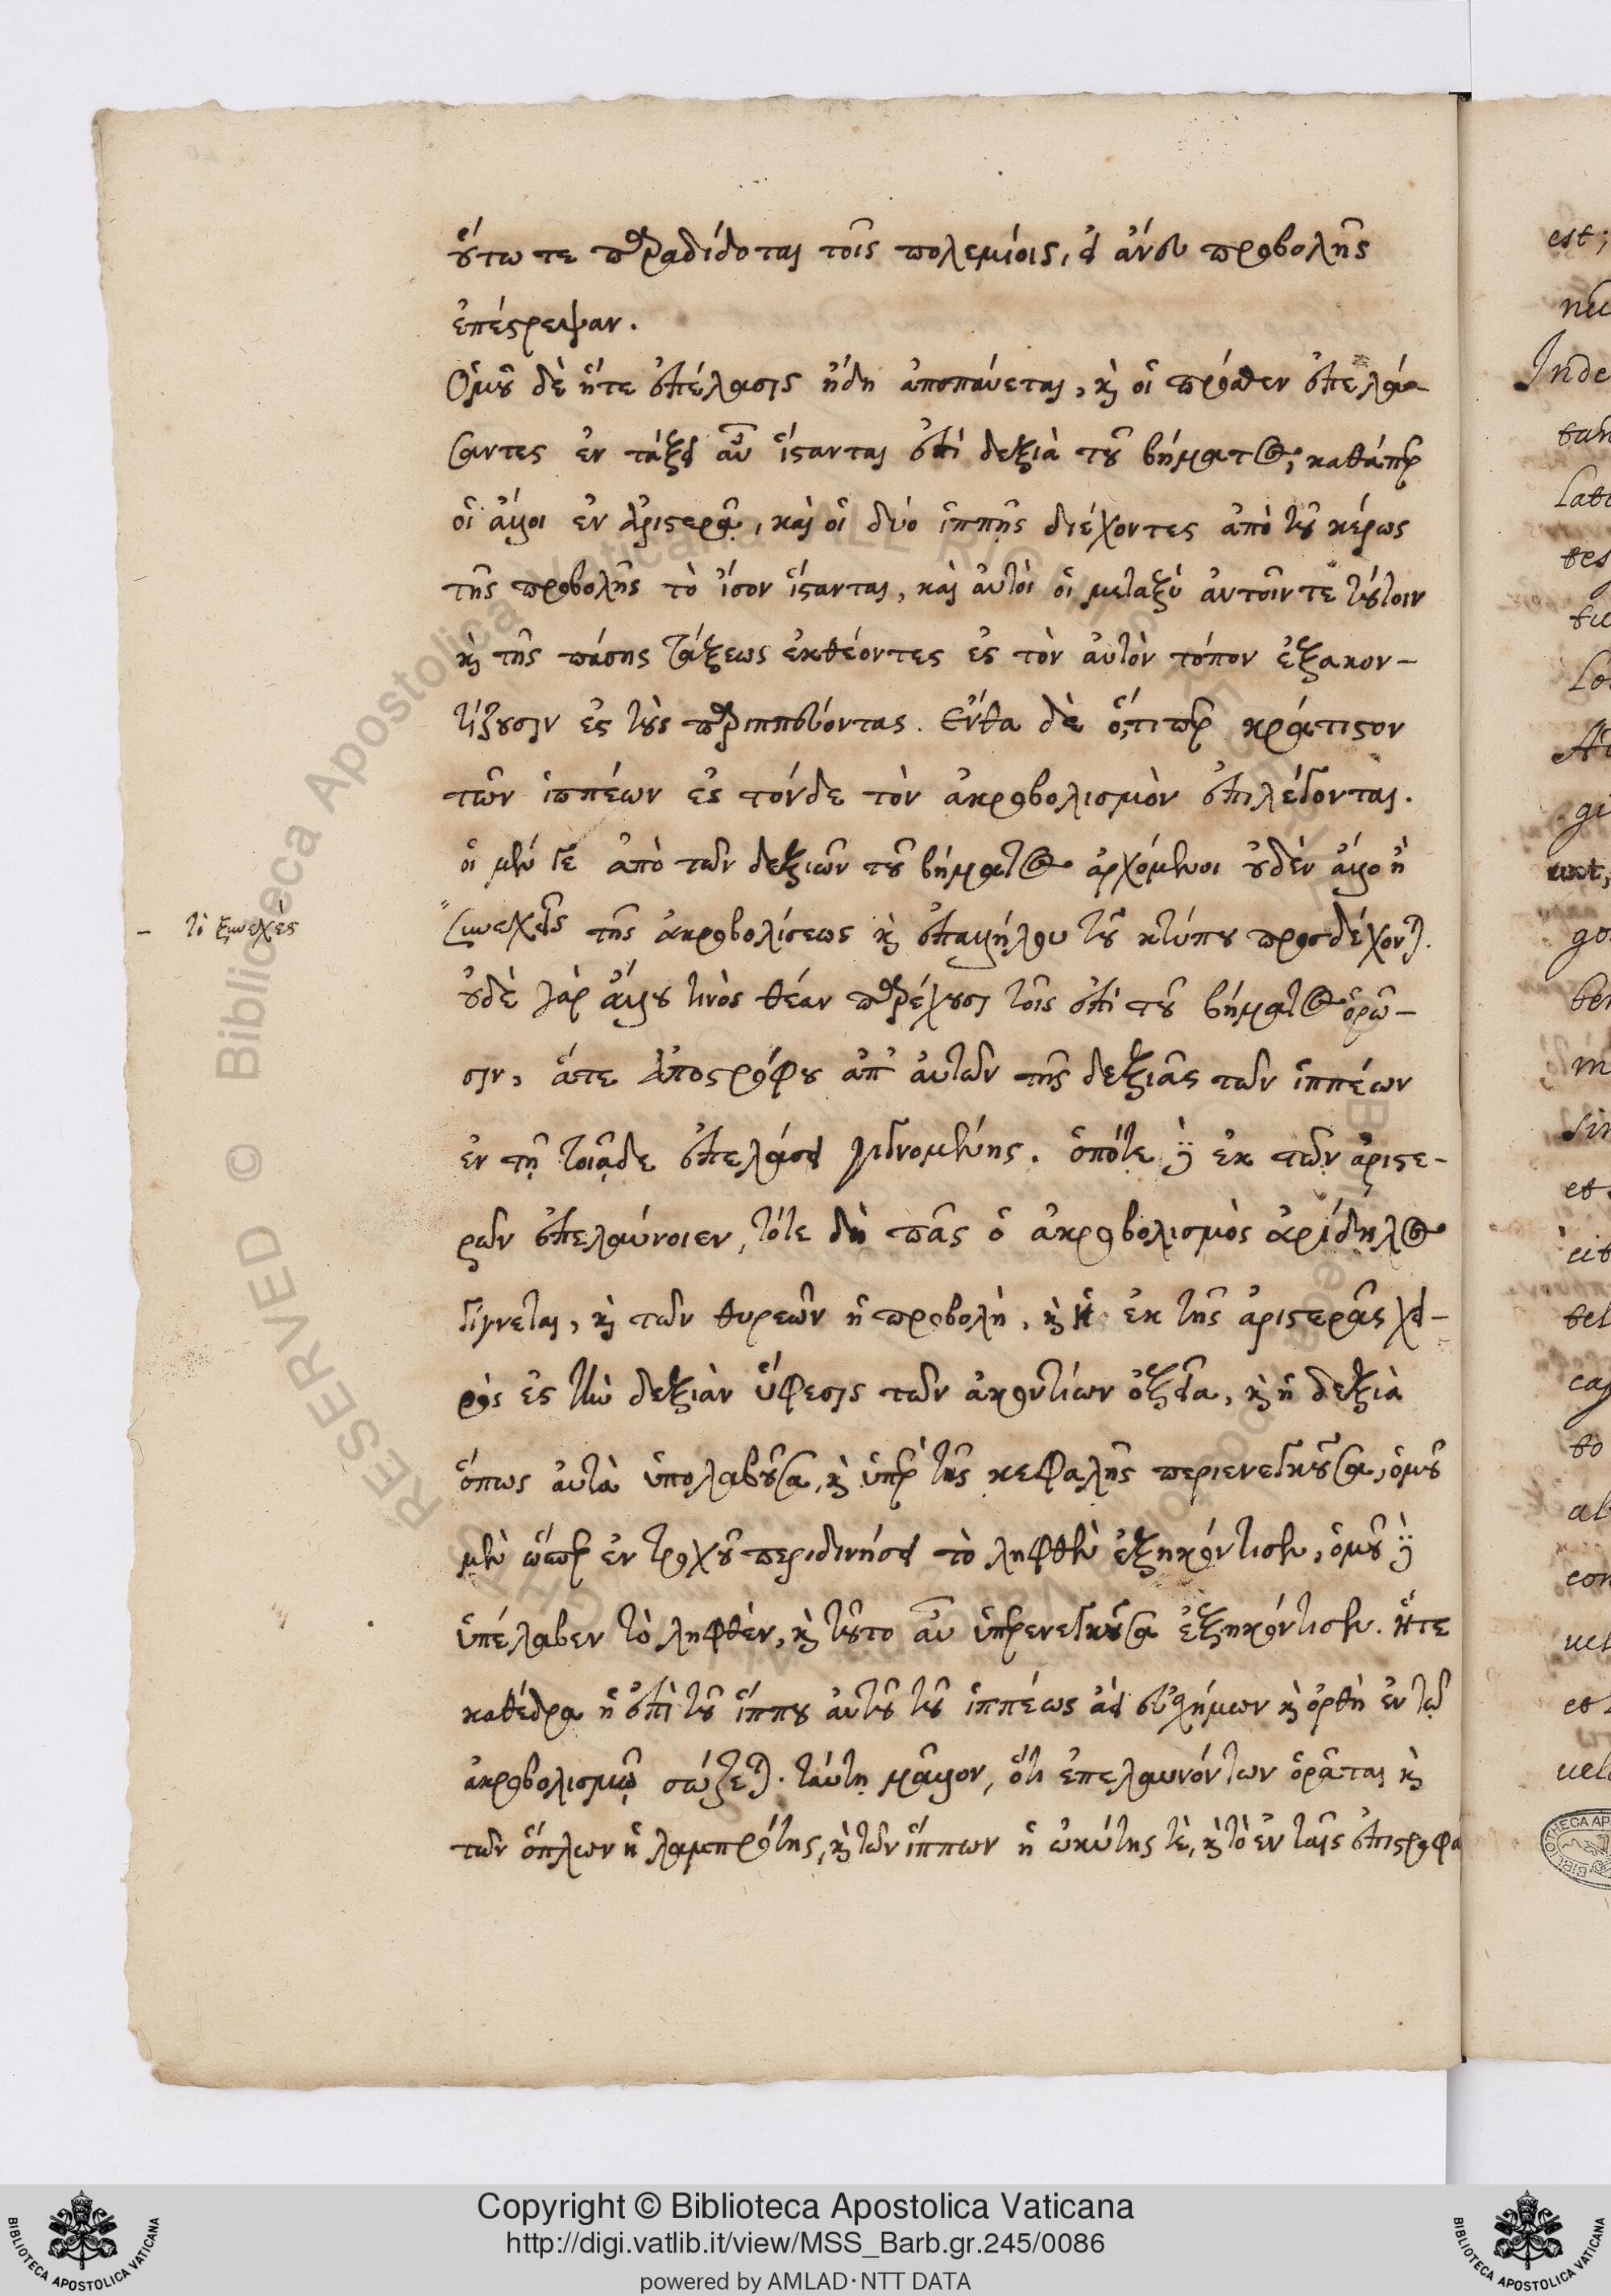 οὕτω τε παραδίδοται τοῖς πολεμίοις, εἰ ἄνευ προβολῆς
ἐπέστρεψαν.
Ὁμοῦ δὲ ἥτε ἐπέλασις ἤδη ἀποπαύεται, καὶ οἱ πρόσθεν ἐπελά-
σαντες ἐν τάξει αὖ ἵστανται ἐπὶ δεξιὰ τοῦ βήματος, καθάπερ
οἱ ἄλλοι ἐν ἀριστερᾷ, καὶ οἱ δύο ἱππῆς διέχοντες ἀπὸ τοῦ κέρως
τῆς προβολῆς τὸ ἴσον ἵστανται, καὶ αὐτοὶ οἱ μεταξὺ αὐτοῖν τε τούτοιν
καὶ τῆς πάσης τάξεως ἐκθέοντες ἐς τὸν αὐτὸν τόπον ἐξακον-
τίζουσιν ἐς τοὺς παριππεύοντας. Ἔνθα δὲ ὅ,τιπερ κράτιστον
τῶν ἱππέων ἐς τόνδε τὸν ἀκροβολισμὸν ἐπιλέγονται.
οἱ μέν γε ἀπὸ τῶν δεξιῶν τοῦ βήματος ἀρχόμενοι οὐδὲν ἄλλο ἢ
συνεχεῖς τῆς ἀκροβολίσεως καὶ ἐπαλλήλου τοῦ κτύπου προσδέχονται.
- τὸ ξυνεχὲς
οὐδὲ γὰρ ἄλλου τινὸς θέαν παρέχουσι τοῖς ἐπὶ τοῦ βήματος ὁρῶ-
σιν, ἅτε ἀποστρόφου ἀπ' αὐτῶν τῆς δεξιᾶς τῶν ἱππέων
ἐν τῇ τοιᾷδε ἐπελάσει γιγνομένης. ὁπότε δὲ ἐκ τῶν ἀριστε-
ρῶν ἐπελαύνοιεν, τότε δὴ πᾶς ὁ ἀκροβολισμὸς ἀρίδηλος
γίγνεται, καὶ τῶν θυρεῶν ἡ προβολὴ, καὶ ἡ ἐκ τῆς ἀριστερᾶς χει-
ρὸς ἐς τὴν δεξιὰν ὕφεσις τῶν ἀκοντίων ὀξεῖα, καὶ ἡ δεξιὰ
ὅπως αὐτὰ ὑπολαβοῦσα, καὶ ὑπὲρ τῆς κεφαλῆς περιενεγκοῦσα, ὁμοῦ
μὲν ὥσπερ ἐν τροχοῦ περιδινήσει τὸ ληφθὲν ἐξηκόντισεν, ὁμοῦ δὲ
ὑπέλαβεν τὸ ληφθὲν, καὶ τοῦτο αὖ ὑπερενεγκοῦσα ἐξηκόντισεν. ἥτε
καθέδρα ἡ ἐπὶ τοῦ ἵππου αὐτοῦ τοῦ ἱππέως ἀεὶ εὐσχήμων καὶ ὀρθὴ ἐν τῷ
ἀκροβολισμῷ σώζεται. ταύτῃ μᾶλλον, ὅτι ἐπελαυνόντων ὁρᾶται καὶ
τῶν ὅπλων ἡ λαμπρότης, καὶ τῶν ἵππων ἡ ὠκύτης τὲ, καὶ τὸ ἐν ταῖς ἐπιστροφα
est;
Inde
Copyright © Biblioteca Apostolica Vaticana
http://digi.vatlib.it/view/MSS_Barb.gr.245/0086
powered by AMLAD·NTT DATA